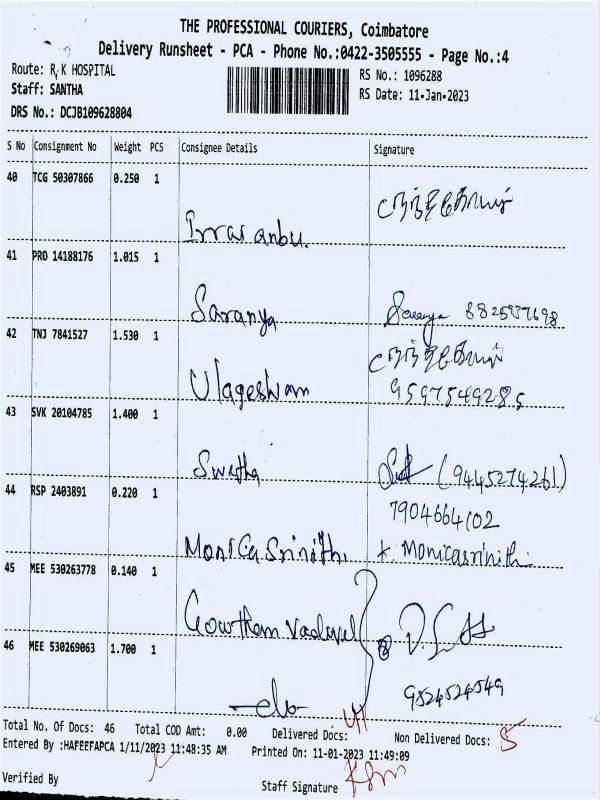 THE PROFESSIONAL COURIERS, Coimbatore
Delivery Runsheet - PCA - Phone No.:0422-3505555 - Page No.:4
Route: R K HOSPITAL
RS No.: 1096288
Staff: SANTHA
RS Date: 11-Jan-2023
DRS No.: DCJB109628804
S No Consignment No Weight PCS Consignee Details Signature
40 TCG 50307866 0.250 1
Irrai anbu.
41 PRO 14188176 1.015 1
Saranya
42 TNJ 7841527 1.530 1
Ulageshwam
9597549285
43 SVK 20104785 1.400 1
Swetha (9445274261)
44 RSP 2403891 0.220 1
7904664102
Monica Srinithi. K. Monicasrinithi
45 MEE 530263778 0.140 1
Gowtham Vadivel
46 MEE 530269063 1.700 1
9524524549
Total No. Of Docs: 46 Total COD Amt: 0.00 Delivered Docs: 41 Non Delivered Docs: 5
Entered By :HAFEEFAPCA 1/11/2023 11:48:35 AM Printed On: 11-01-2023 11:49:09
Verified By Staff Signature